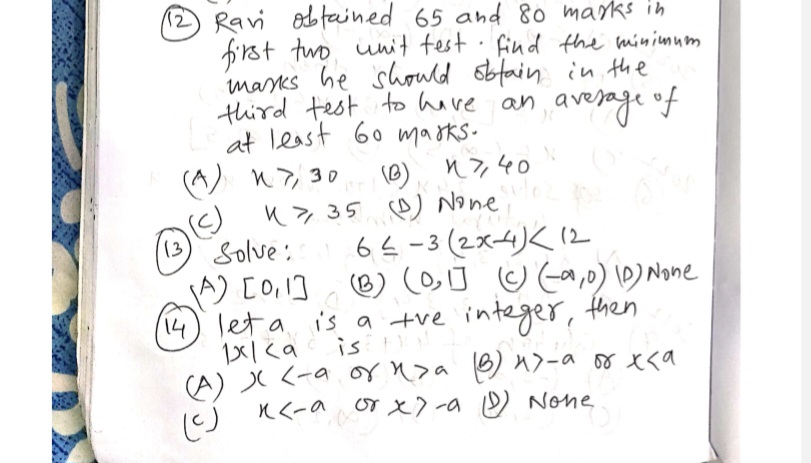 (12) Ravi obtained 65 and 80 marks in
first two unit test. find the minimum
marks he should obtain in the
third test to have an average of
at least 60 marks.
(A) x ≥ 30 (B) x ≥ 40
(C) x ≥ 35 (D) None
(13) Solve: 6 ≤ -3(2x-4) < 12
(A) [0,1] (B) (0,1] (C) (-∞,0) (D) None
(14) let a is a +ve integer, then
|x|<a is
(A) x <-a or x>a (B) x>-a or x<a
(C) x<-a or x>-a (D) None